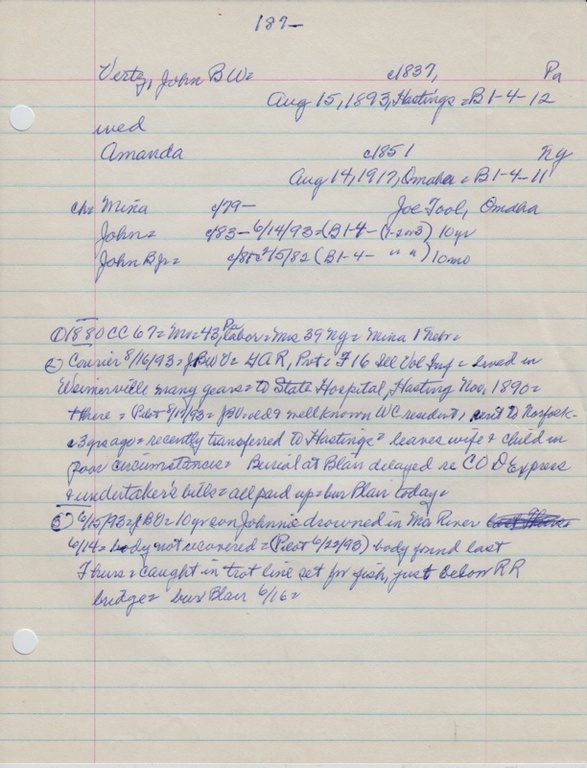 187-
Vertz, John B W= c1837, Pa
Aug 15, 1893, Hastings = B1-4-12
wed
Amanda c1851 NY
Aug 14, 1917, Omaha = B1-4-11
ch= Mina c/79- Joe Tool, Omaha
John= c/83- 6/14/93= (B1-4- ) 10yr
John B Jr= 2/5/82 (B1-4- " " ) 10mo
① 1880 CC 67= Mr= 43, Pa labor= Mrs 39 NY= Mina 1 Nebr=
② Courier 8/16/93= JBWV= GAR, Pvt= F 16 Ill Vol Inf= lived in
many years= to State Hospital, Hasting Nov, 1890=
there= Pilot 8/17/93= JBV= old & well known WC resident, sent to Norfolk
3 yrs ago= recently transferred to Hastings= leaves wife & child in
poor circumstances= Burial at Blair delayed re COD Express
& undertaker's bills= all paid up= bur Blair today=
③ 6/15/93= JBV= 10 yr son Johnnie drowned in Mo River
6/14= body not recovered= (Pilot 6/22/93) body found last
Thurs= caught in trot line set for fish, just below RR
bridge= bur Blair 6/16=